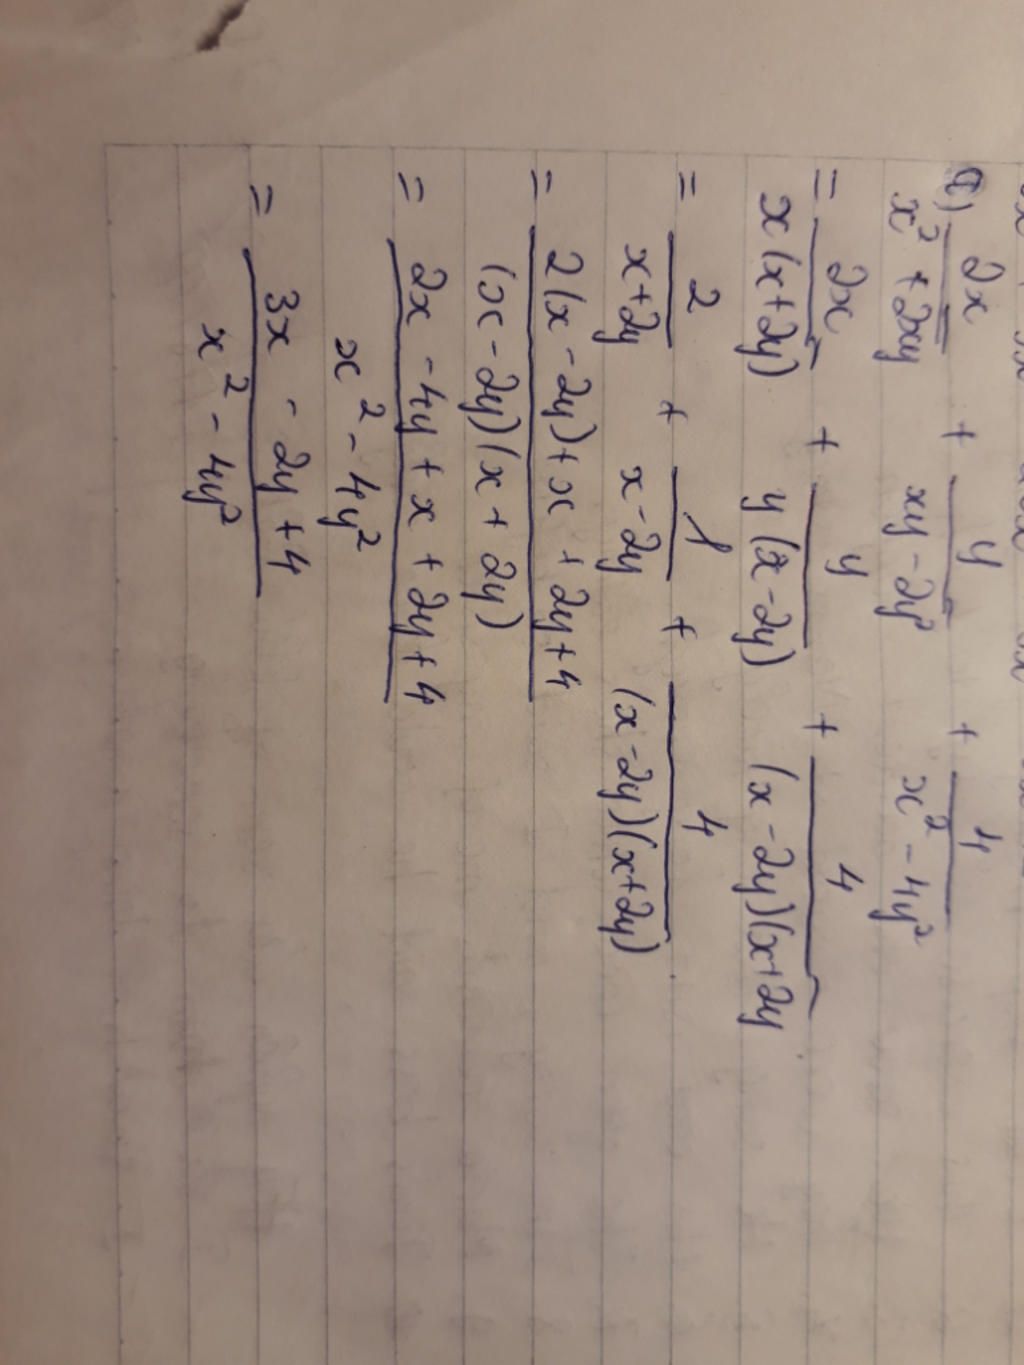 a) 2x/(x² + 2xy) + y/(xy - 2y²) + 4/(x² - 4y²)
= 2x/(x(x+2y)) + y/(y(x-2y)) + 4/((x-2y)(x+2y
= 2/(x+2y) + 1/(x-2y) + 4/((x-2y)(x+2y))
= (2(x-2y)+x+2y+4)/((x-2y)(x+2y))
= (2x-4y+x+2y+4)/(x²-4y²)
= (3x-2y+4)/(x²-4y²)